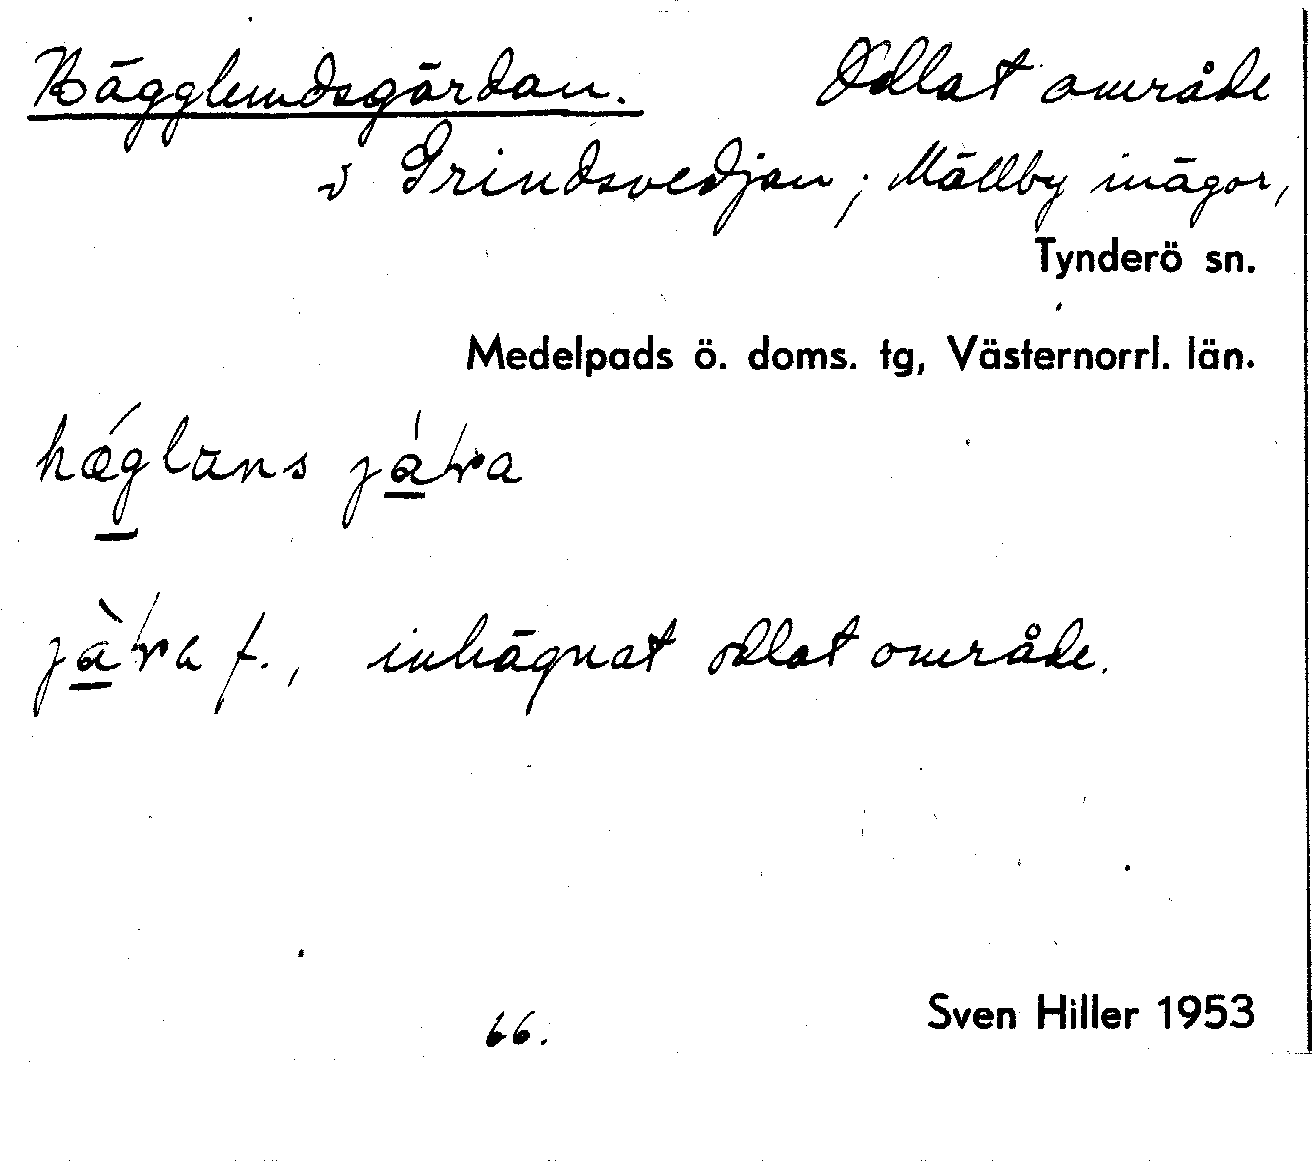 Hägglundsgärdan. Odlat område
i Grindsvedjan; Mällby inägor,
Tynderö sn.
Medelpads ö. doms. tg, Västernorrl. län.
hǽglans
f., inhägnat odlat område.
66.
Sven Hiller 1953